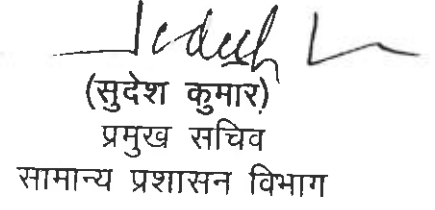 (सुदेश कुमार)
प्रमुख सचिव
सामान्य प्रशासन विभाग